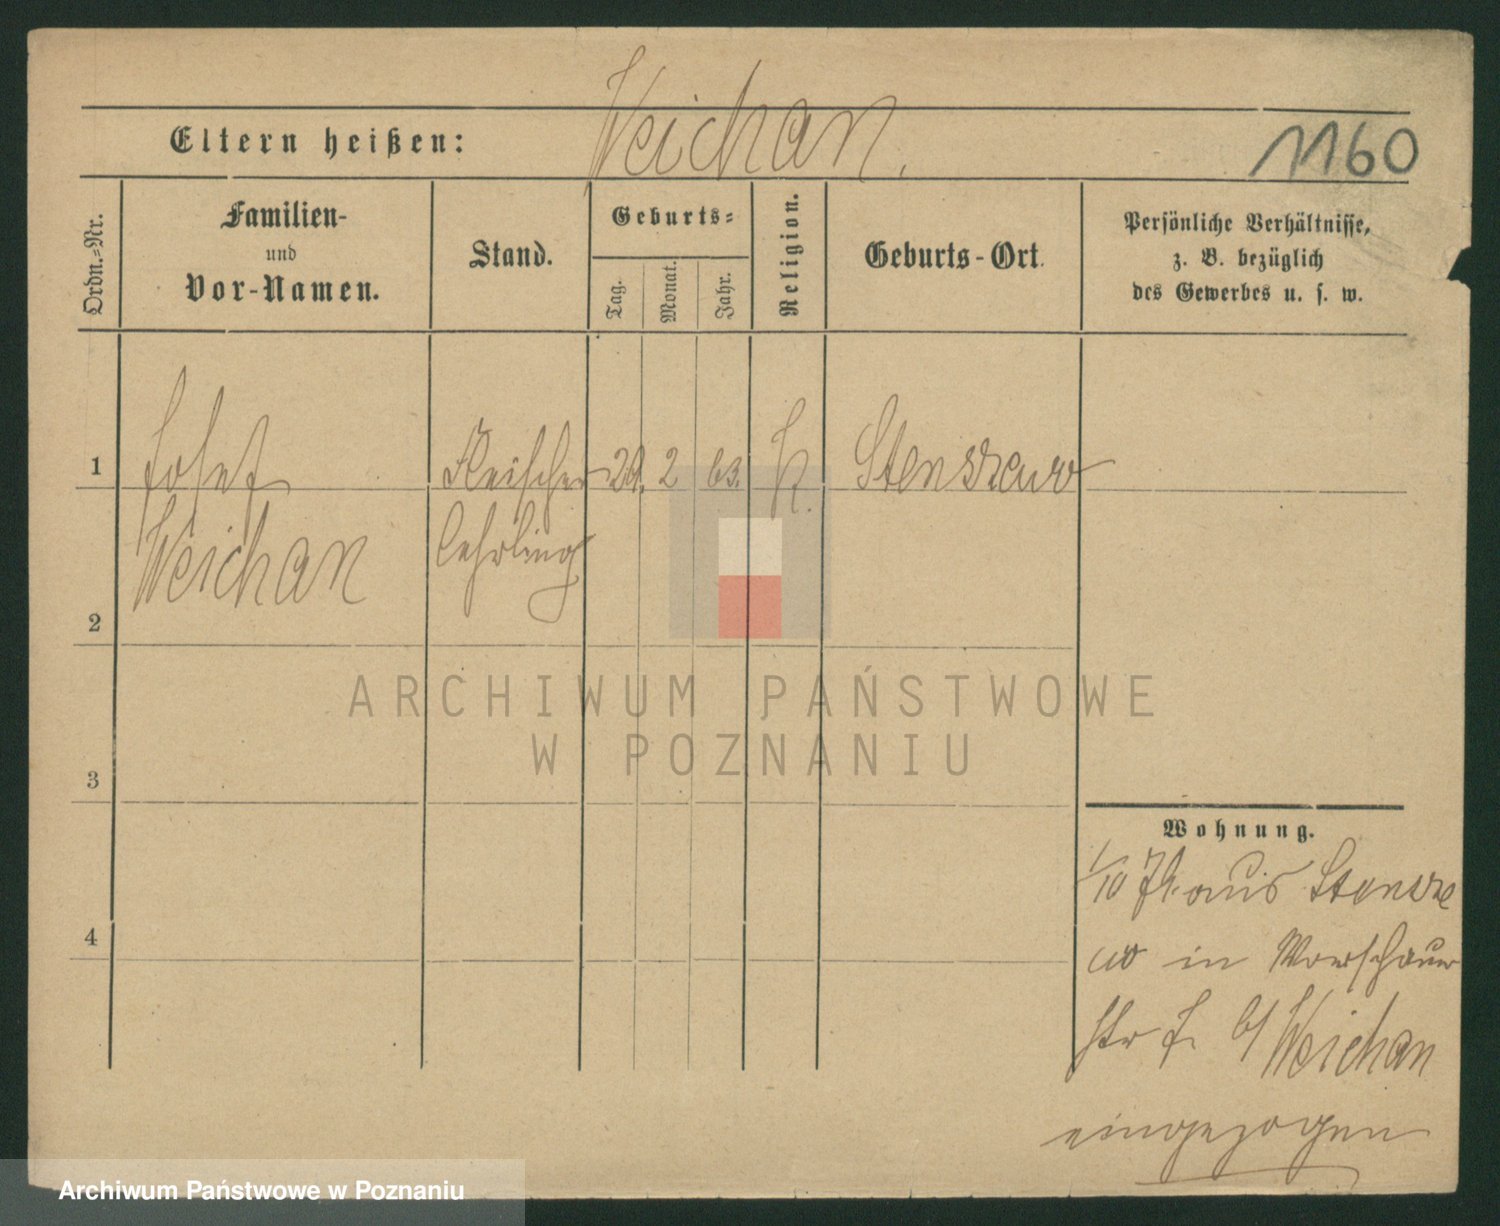 Weichan.
Eltern heißen:
1160
Ordn.-Nr.
Familien-
und
Vor-Namen.
Stand.
Geburts-
Tag.
Monat.
Jahr.
Religion.
Geburts-Ort.
Persönliche Verhältnisse,
z. B. bezüglich
des Gewerbes u. s. w.
1
Josef
Weichan
Fleischer
lehrling
2
63.
k.
Stenszewo
2
3
4
Wohnung.
1/10 aus Stensze
wo in Warschauer
str b/ Weichan
eingezogen
ARCHIWUM PAŃSTWOWE
W POZNANIU
Archiwum Państwowe w Poznaniu